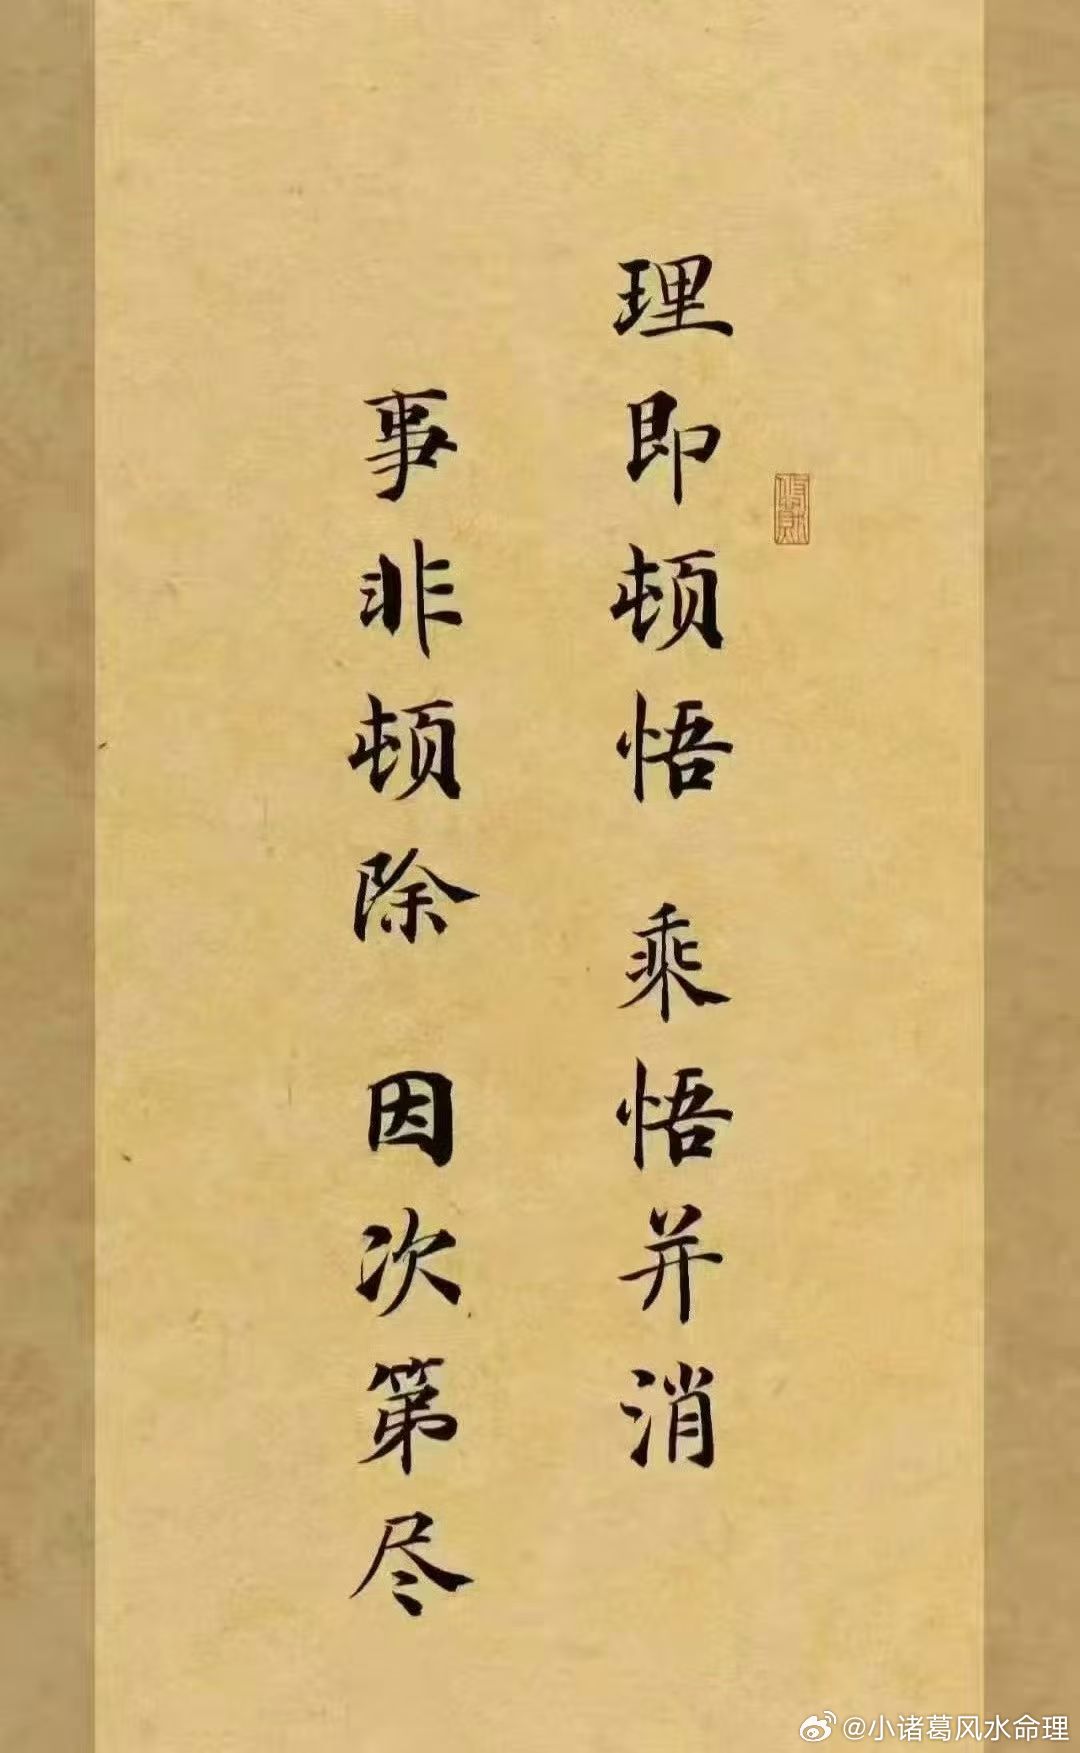 理即顿悟 乘悟并消
事非顿除 因次第尽
@小诸葛风水命理